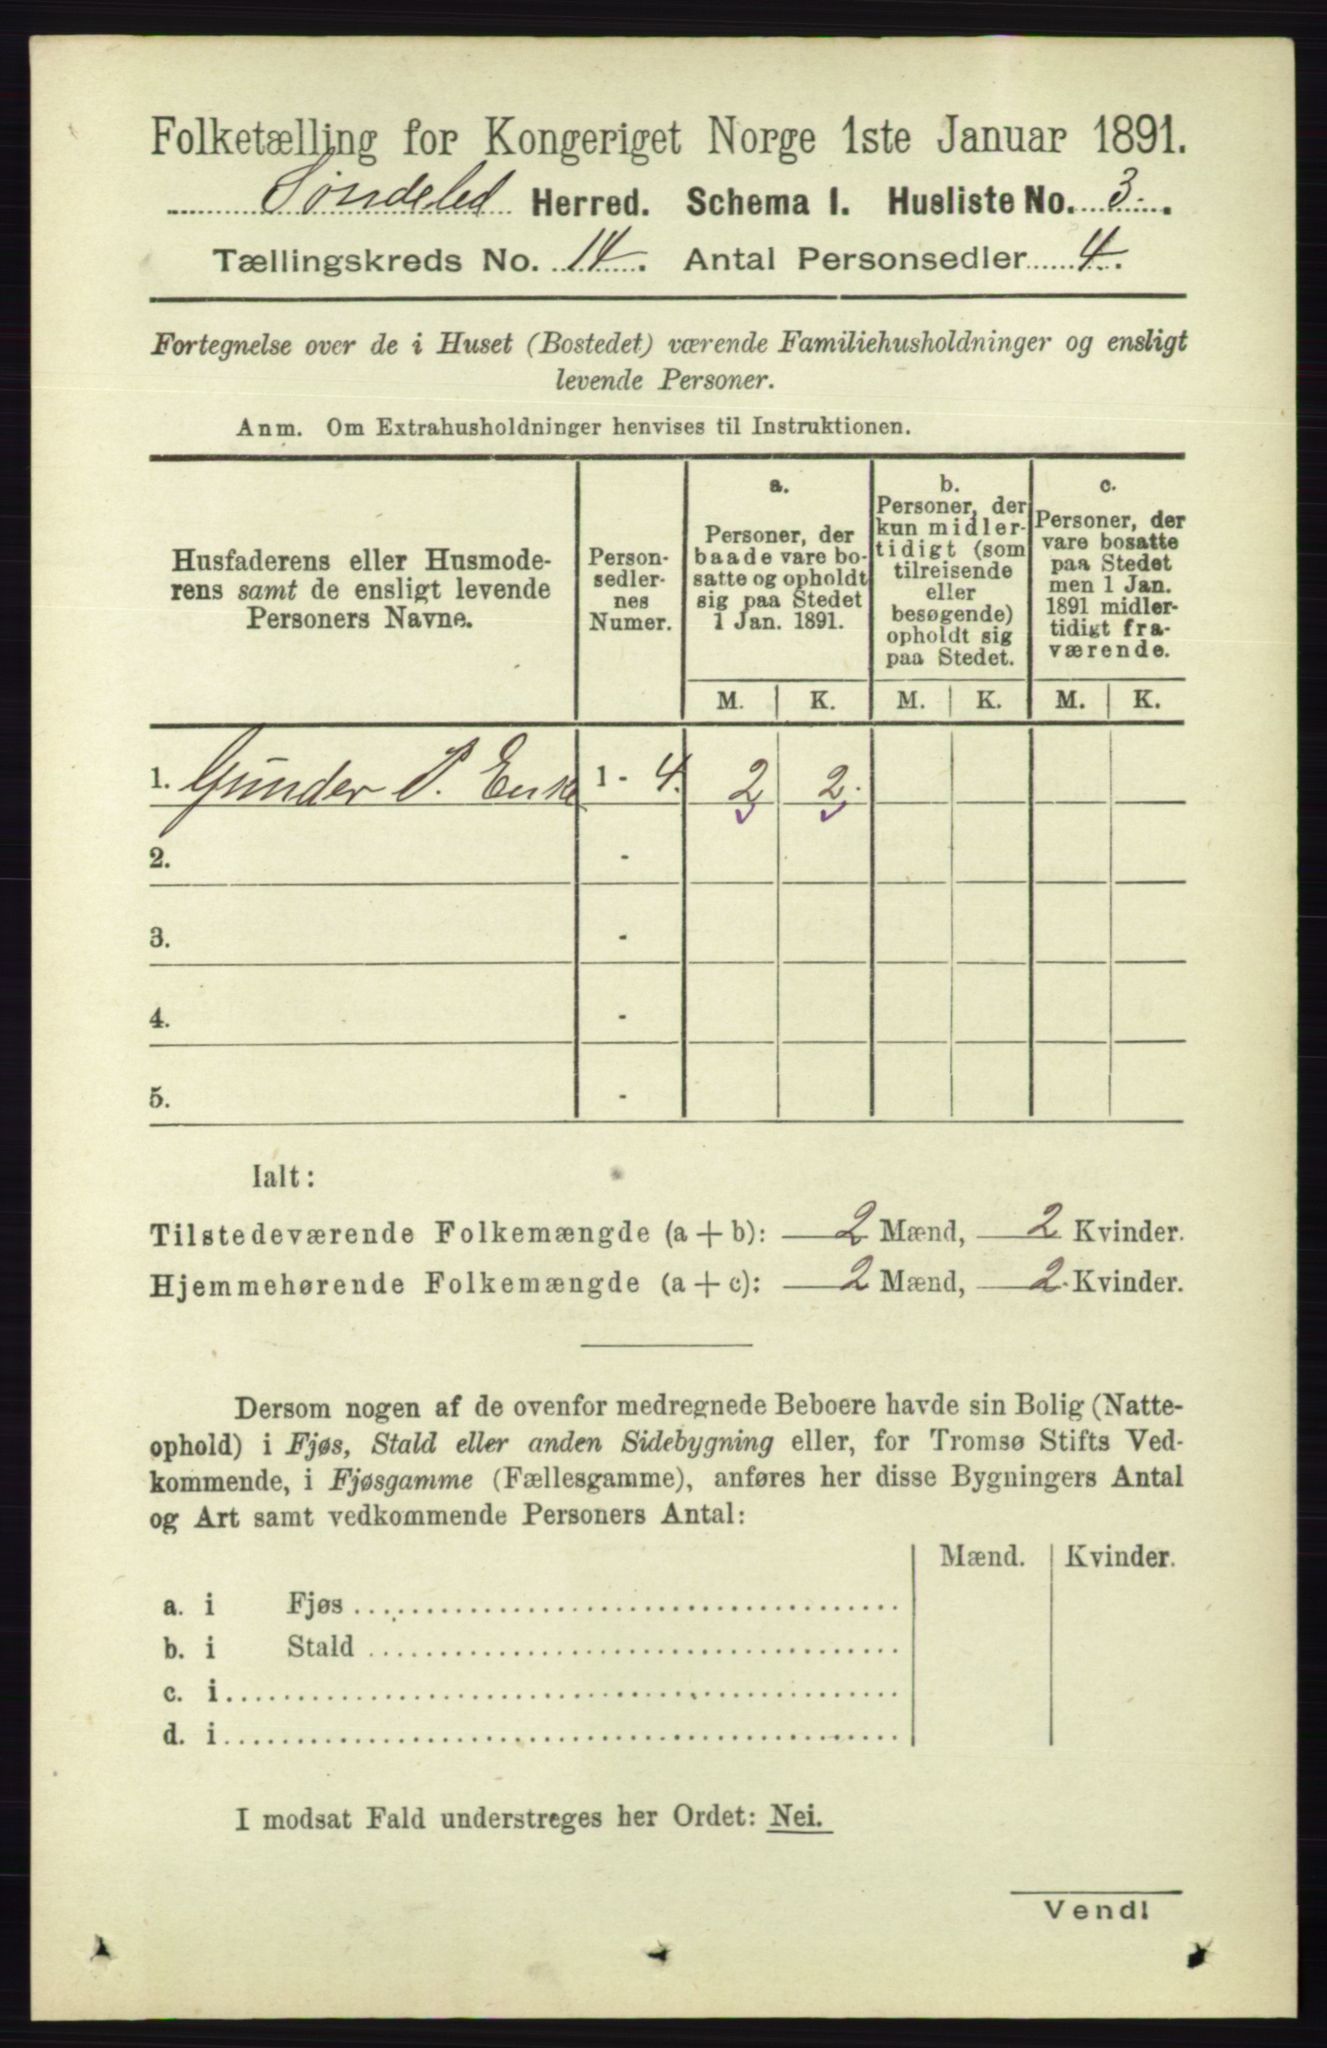 Folketælling for Kongeriget Norge 1ste Januar 1891.
Søndeled Herred. Schema I. Husliste No. 3.
Tællingskreds No. 14. Antal Personsedler 4.
Fortegnelse over de i Huset (Bostedet) værende Familiehusholdninger og ensligt
levende Personer.
Anm. Om Extrahusholdninger henvises til Instruktionen.
Husfaderens eller Husmode-
rens samt de ensligt levende
Personers Navne.
Person-
sedler-
nes
Numer.
a.
Personer, der
baade vare bo-
satte og opholdt
sig paa Stedet
1 Jan. 1891.
b.
Personer, der
kun midler-
tidigt (som
tilreisende
eller
besøgende)
opholdt sig
paa Stedet.
c.
Personer, der
vare bosatte
paa Stedet
men 1 Jan.
1891 midler-
tidigt fra-
værende.
M. K. M. K. M. K.
1. Gunder P. Enke 1 - 4. 2 2.
2. -
3. -
4. -
5. -
Ialt:
Tilstedeværende Folkemængde (a + b): 2 Mænd, 2 Kvinder.
Hjemmehørende Folkemængde (a + c): 2 Mænd, 2. Kvinder.
Dersom nogen af de ovenfor medregnede Beboere havde sin Bolig (Natte-
ophold) i Fjøs, Stald eller anden Sidebygning eller, for Tromsø Stifts Ved-
kommende, i Fjøsgamme (Fællesgamme), anføres her disse Bygningers Antal
og Art samt vedkommende Personers Antal:
Mænd. Kvinder.
a. i Fjøs
b. i Stald
c. i
d. i
I modsat Fald understreges her Ordet: Nei.
Vend!